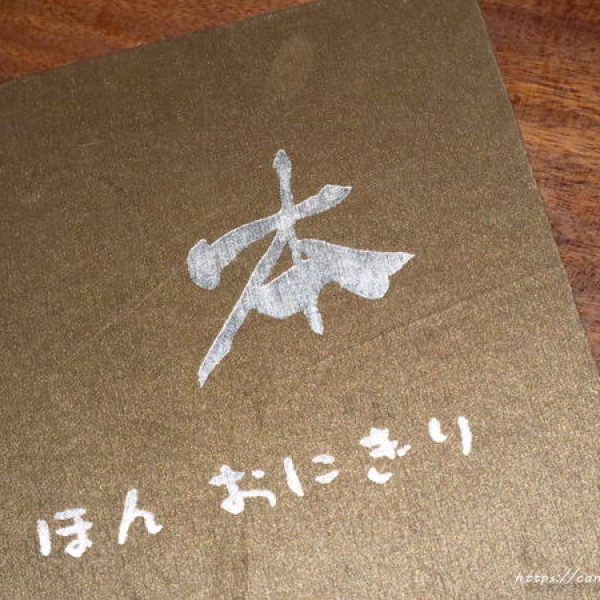 本
ほん おにぎり
https://can